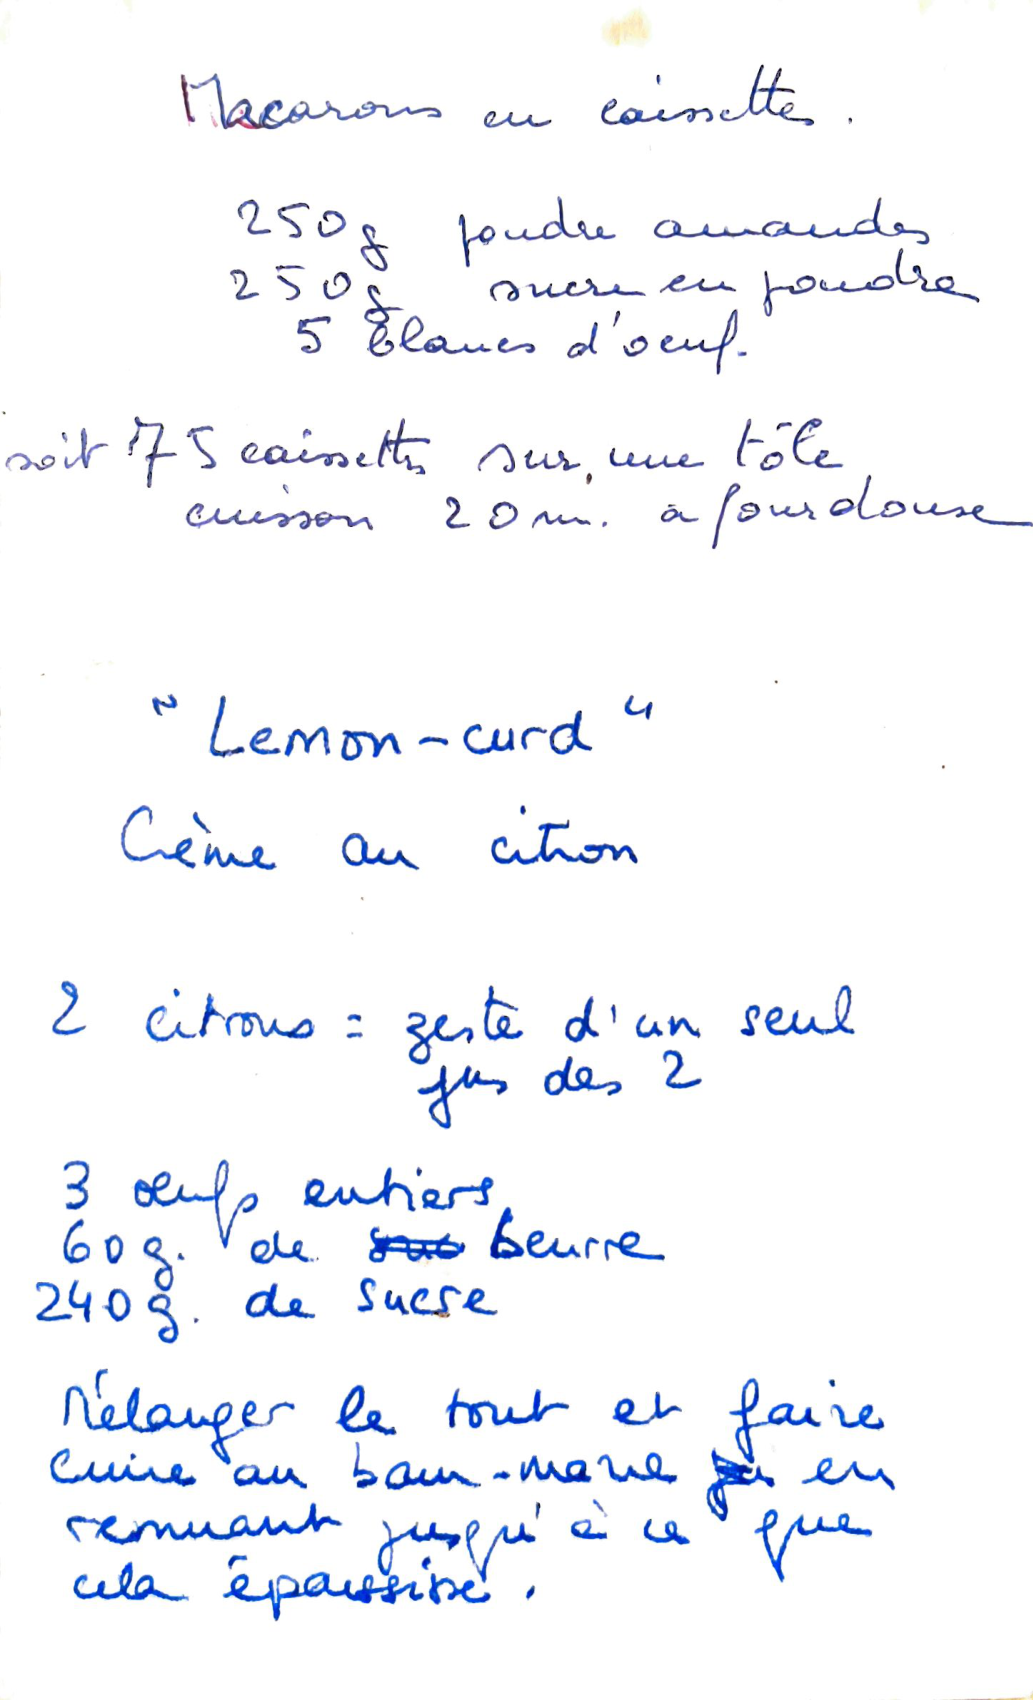 Macarons en caissettes.
250g poudre amandes
250g sucre en poudre
5 blancs d'oeuf.
soit 75 caissettes sur une tôle
cuisson 20 m. a four douse
"Lemon-curd"
Crème au citron
2 citrons = zeste d'un seul
jus des 2
3 oeufs entiers
60g. de beurre
240g. de sucre
Mélanger le tout et faire
cuire au bain-marie en
remuant jusqu'à ce que
cela épaississe.